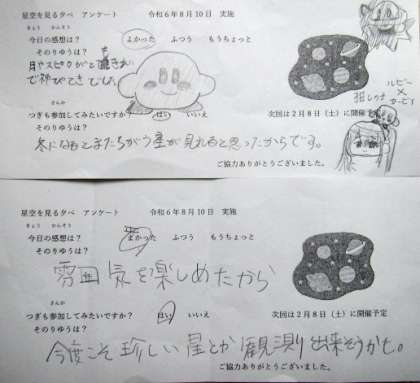 星空を見る夕べ アンケート 令和6年8月10日 実施
きょう かんそう
今日の感想は? よかった ふつう もうちょっと
そのりゆうは?
月やスピカがと
で神びてきでした。
さんか
つぎも参加してみたいですか? はい いいえ 次回は2月8日(土)に開催
そのりゆうは?
冬になるとまたちがう星が見れると思ったからです。
ご協力ありがとうございました。
推しの子
ルビー
×
カービィ
星空を見る夕べ アンケート 令和6年8月10日 実施
きょう かんそう
今日の感想は? よかった ふつう もうちょっと
そのりゆうは?
雰囲気を楽しめたから
さんか
つぎも参加してみたいですか? はい いいえ 次回は2月8日(土)に開催予定
そのりゆうは?
今度こそ珍しい星とか観測出来そうかも。
ご協力ありがとうございました。